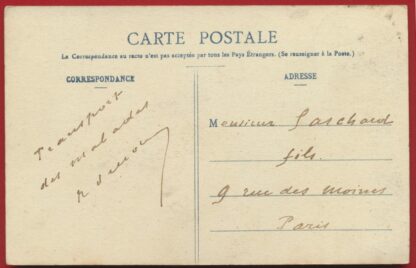 CARTE POSTALE
La Correspondance au recto n'est pas acceptée par tous les Pays Étrangers. (Se renseigner à la Poste.)
CORRESPONDANCE
Transport
des malades
ADRESSE
Monsieur Paschaud
fils.
9 rue des Moines
Paris